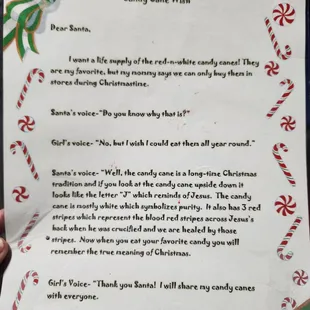 Candy Cane Wish
Dear Santa,
I want a life supply of the red-n-white candy canes! They
are my favorite, but my mommy says we can only buy them in
stores during Christmastime.
Santa's voice-"Do you know why that is?"
Girl's voice- "No, but I wish I could eat them all year round."
Santa's voice- "Well, the candy cane is a long-time Christmas
tradition and if you look at the candy cane upside down it
looks like the letter "J" which reminds of Jesus. The candy
cane is mostly white which symbolizes purity. It also has 3 red
stripes which represent the blood red stripes across Jesus's
back when he was crucified and we are healed by those
stripes. Now when you eat your favorite candy you will
remember the true meaning of Christmas.
Girl's Voice- "Thank you Santa! I will share my candy canes
with everyone.